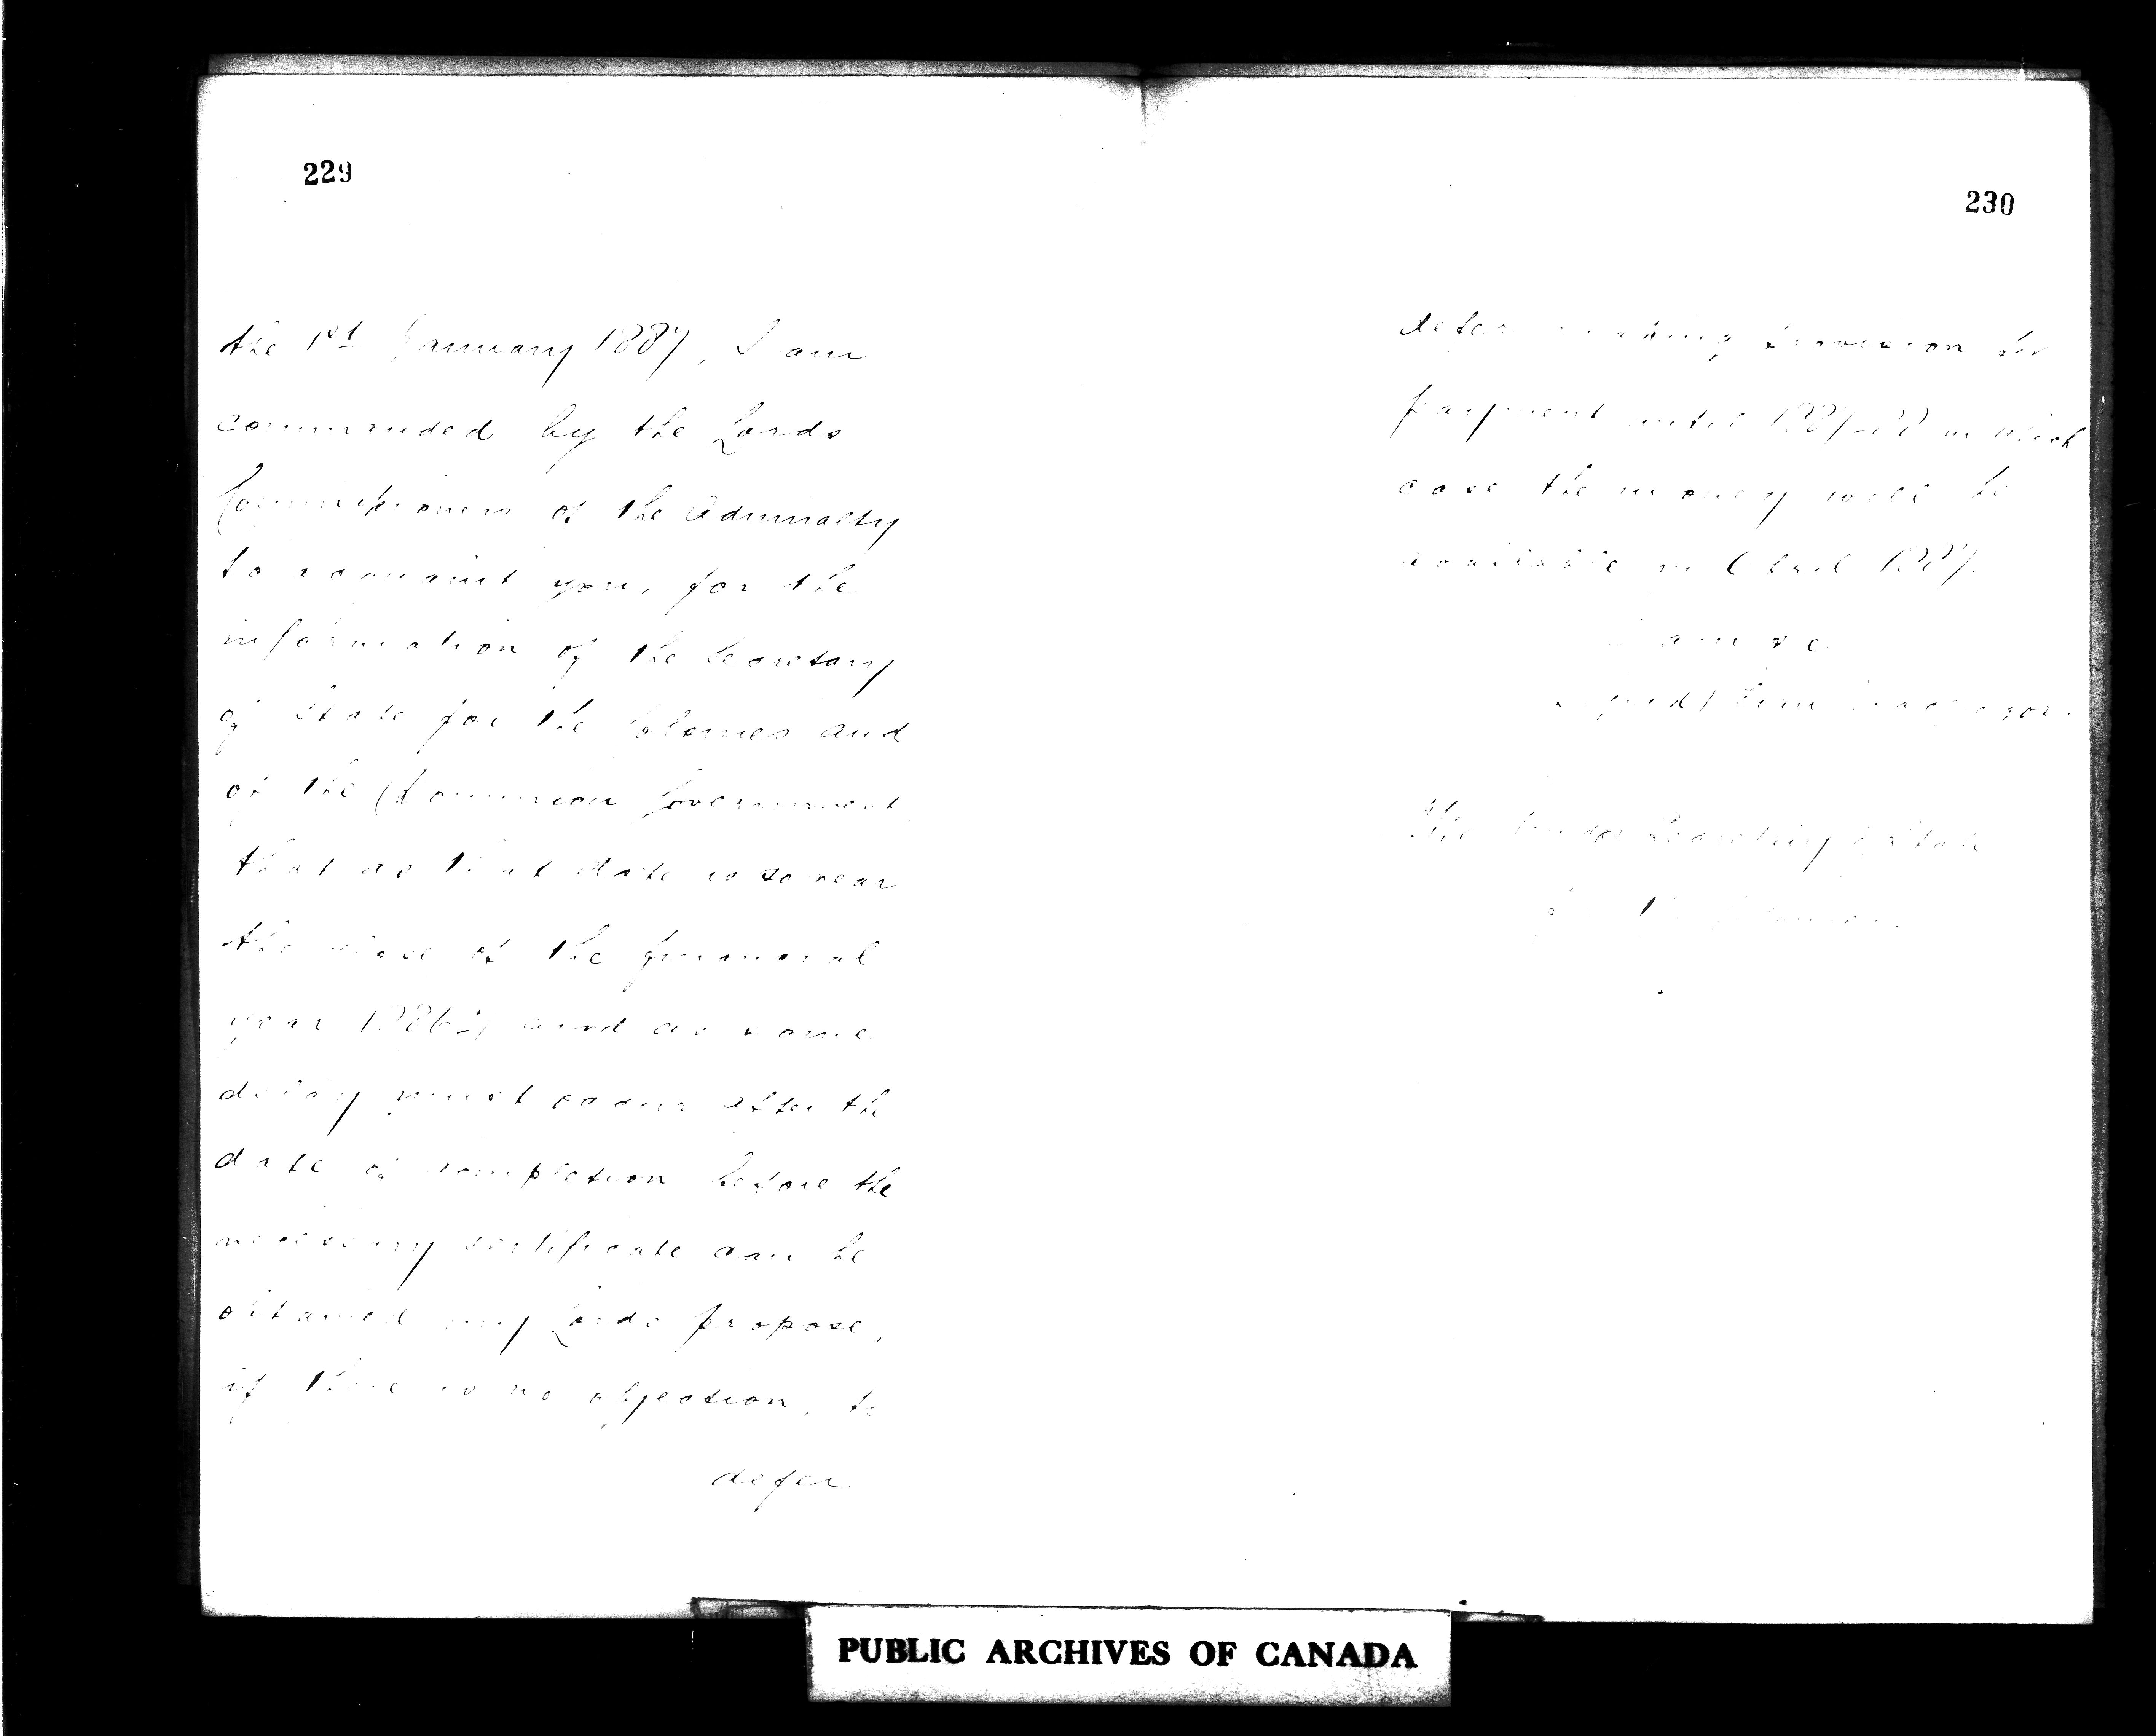 229
the 1st January 1887, I am
commanded by the Lords
Commissioners of the Admiralty
to acquaint you, for the
information of the Secretary
of State for the Colonies and
of the Dominion Government,
that as that date is so near
the close of the financial
year 1886-7, and as some
delay must occur after the
date of completion before the
necessary certificate can be
obtained my Lords propose,
if there is no objection, to
defer
230
defer making provision for
payment until 1887-88 in which
case the money will be
available in April 1887.
I am &c
(signed) Evan Macgregor.
The Under Secretary of State
for the Colonies
PUBLIC ARCHIVES OF CANADA